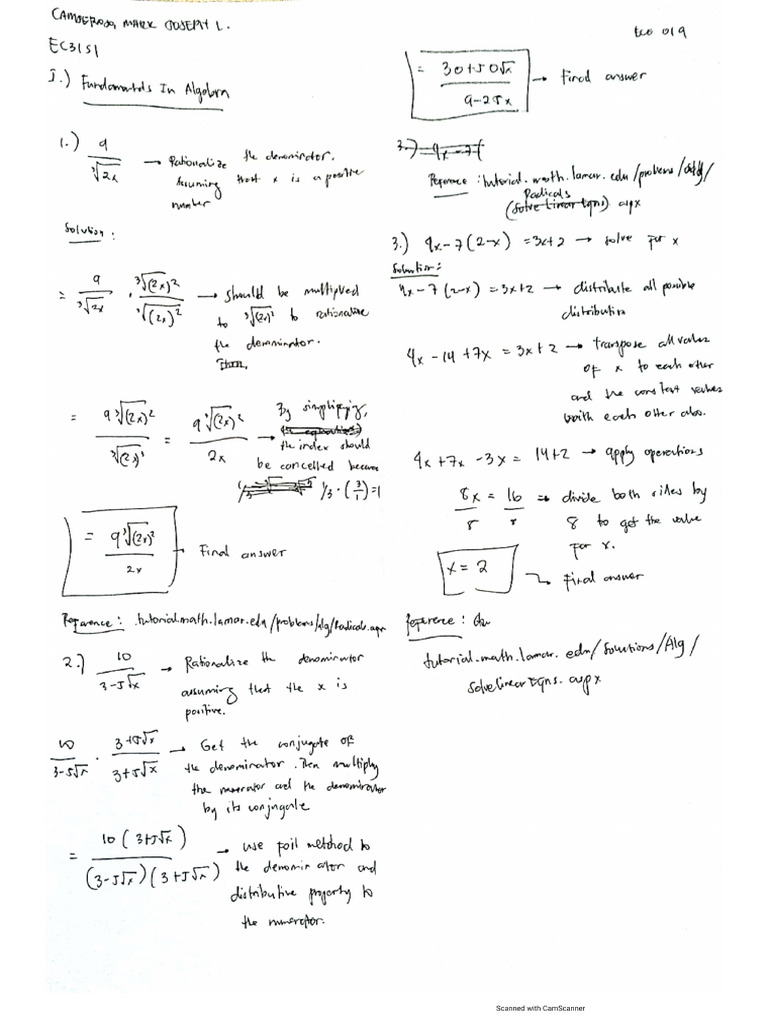 CAMBEROSA, MARK JOSEPH L.
EC31S1
I.) Fundamentals In Algebra
1.) 9/∛2x → Rationalize the denominator.
Assuming that x is a positive
number
Solution:
= 9/∛2x · ∛(2x)²/∛(2x)² → should be multiplied
to ∛(2x)² to rationalize
the denominator.
Then,
= 9∛(2x)²/∛(2x)³ = 9∛(2x)²/2x → By simplifying,
the index should
be cancelled because
1/3 · (3/1) = 1
= 9∛(2x)²/2x → Final answer
Reference: tutorial.math.lamar.edu/problems/alg/Radicals.aspx
2.) 10/3-5√x → Rationalize the denominator
assuming that the x is
positive.
10/3-5√x · 3+5√x/3+5√x → Get the conjugate of
the denominator. Then multiply
the numerator and the denominator
by its conjugate
= 10(3+5√x)/(3-5√x)(3+5√x) → use foil method to
the denominator and
distributive property to
the numerator.
ECO 019
= 30+50√x/9-25x → Final answer
3.) 4x-7(
Reference: tutorial.math.lamar.edu/problems/
Radicals
(Solve Linear Eqns) aspx
3.) 4x-7(2-x) = 3x+2 → solve for x
Solution:
4x-7(2-x) = 3x+2 → distribute all possible
distribution
4x-14+7x = 3x+2 → transpose all values
of x to each other
and the constant values
with each other also.
4x+7x-3x = 14+2 → apply operations
8x/8 = 16/8 → divide both sides by
8 to get the value
for x.
x = 2
→ Final answer
Reference:
tutorial.math.lamar.edu/Solutions/Alg/
SolveLinearEqns.aspx
Scanned with CamScanner